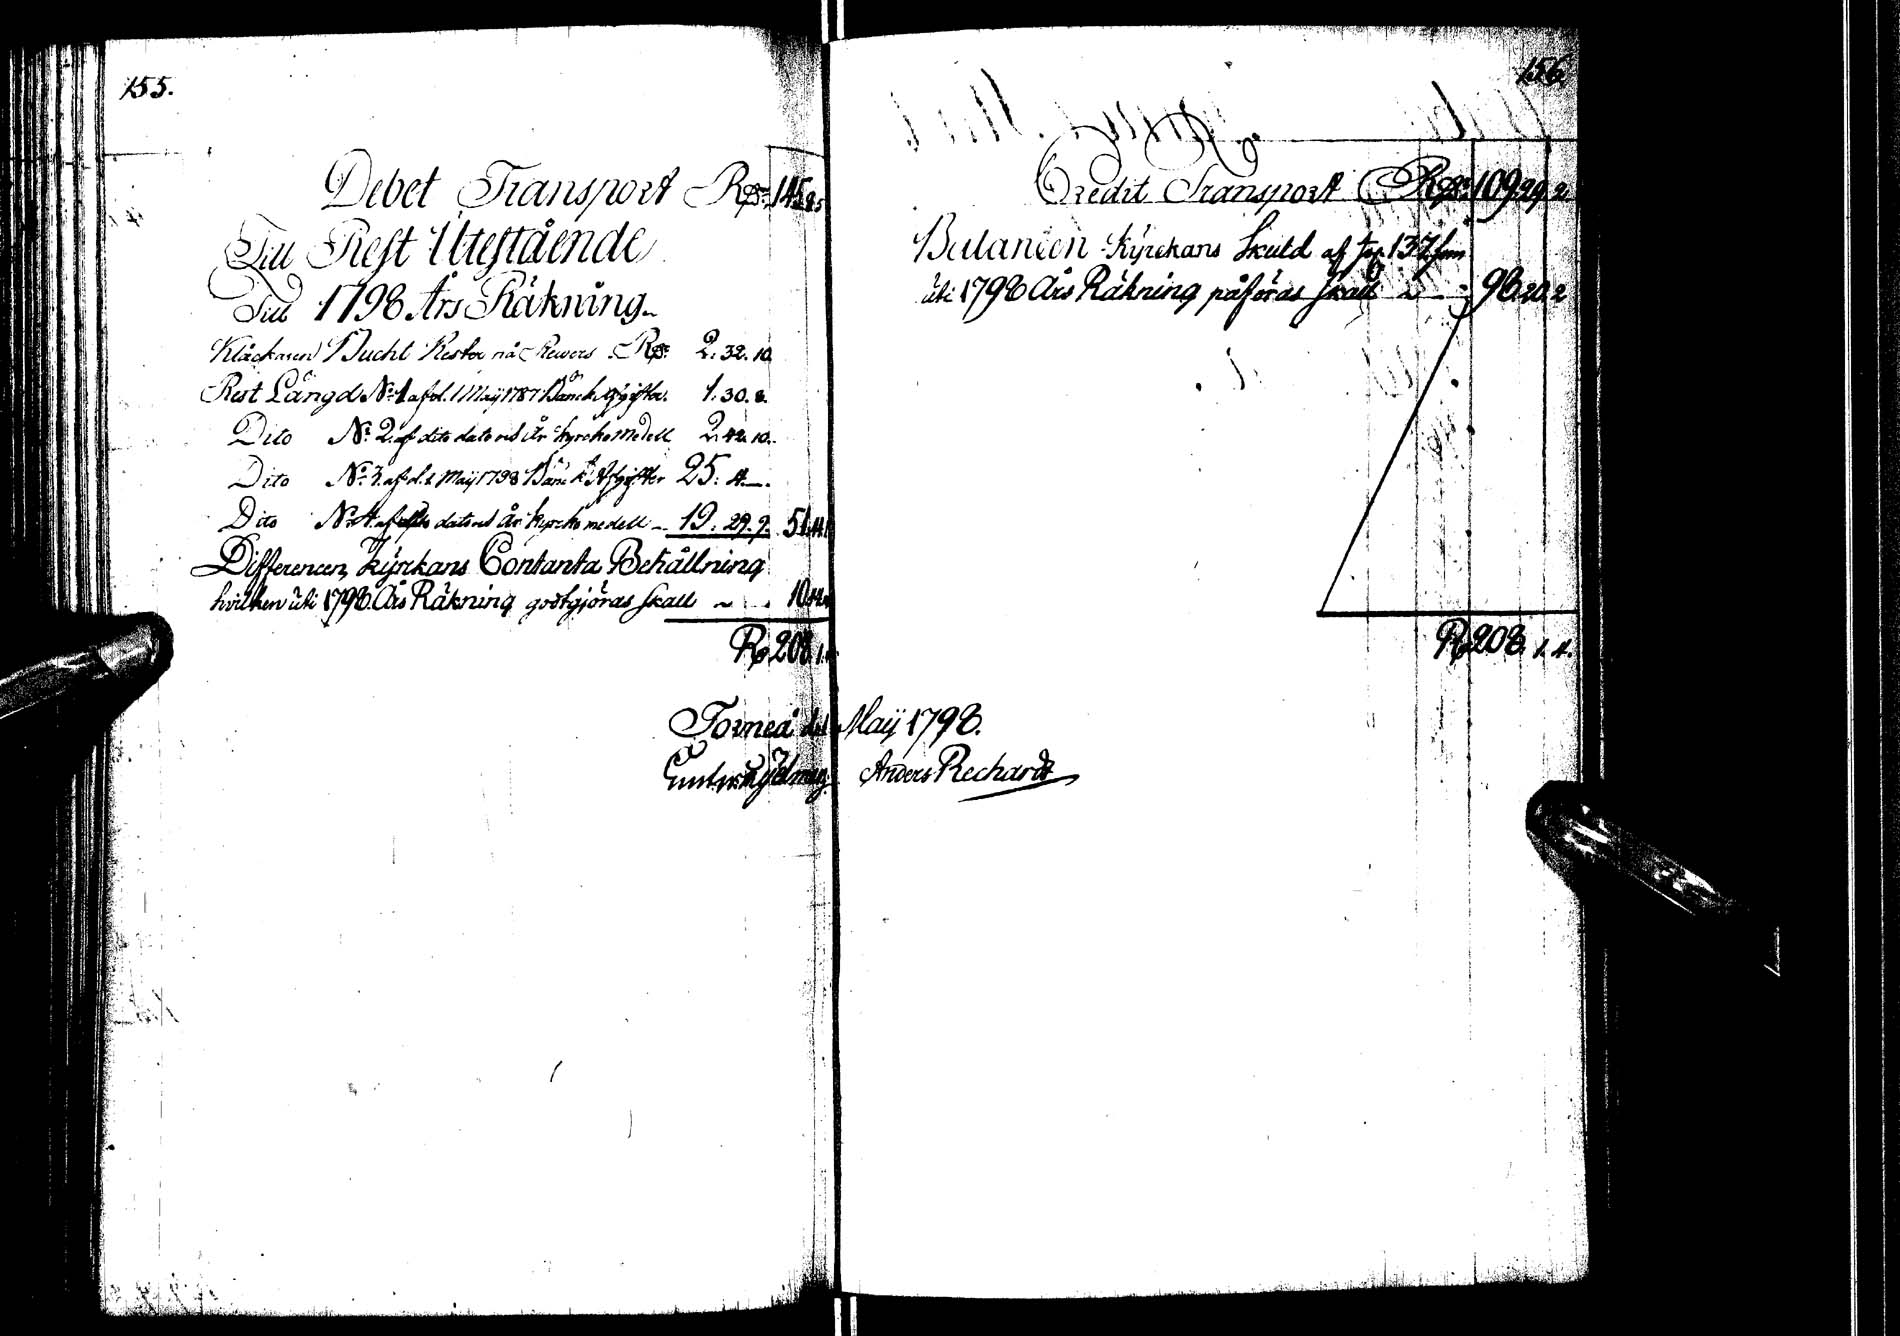 155.
Debet Transport Rdr. 145.
Till Rest Utestående
Till 1798 Års Räkning
Klåckaren Bucht Restar på Revers Rdr. 2. 32. 10.
Rest Längd No. 1 af d. 1 Maij 1787 Bänck Afgifter. 1. 30. 8.
Dito No. 2. af dito dato och År kyrckomedell 2. 42. 10.
Dito No. 3. af d. 1 Maij 1798 Bänck Afgifter 25. 4. —.
Dito No. 4. af dito dato och År kyrckomedell 19. 29. 9. 51.
Differencen, Kyrckans Contanta Behållning
hvilken uti 1798. Års Räkning godtgjöras skall 10.
R 208. 1.
156
Credit Transport Rdr. 109. 29. 2
Balancen Kyrckans Skuld af pag. 137 som
uti 1798 Års Räkning påföras skall 98. 20. 2
R 208. 1. 4.
Torneå d. Maij 1798.
Anders Rechardt